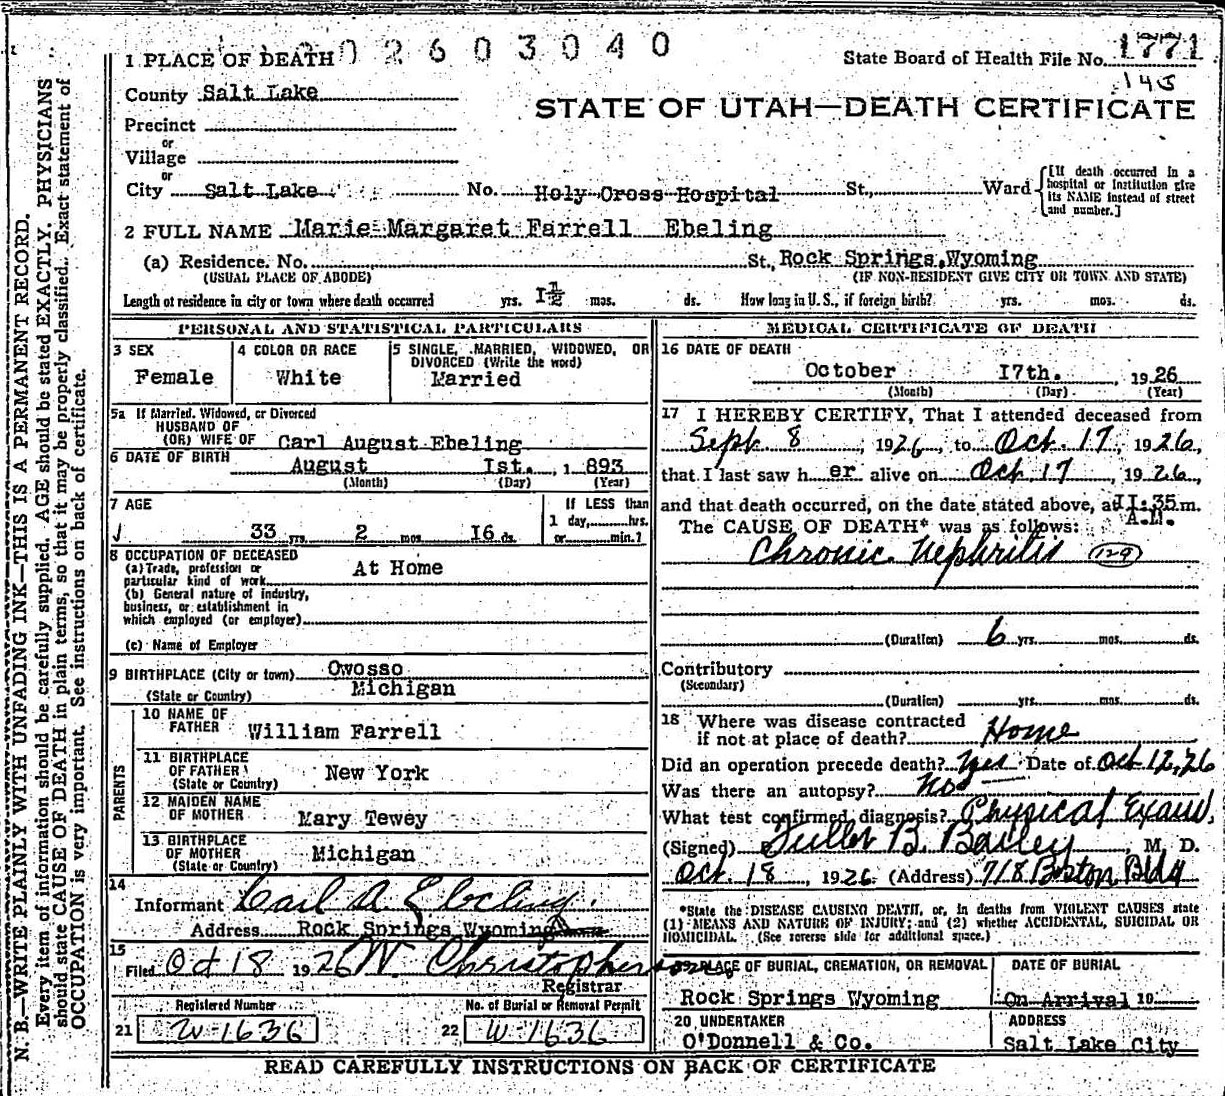 N. B.—WRITE PLAINLY WITH UNFADING INK—THIS IS A PERMANENT RECORD.
Every item of information should be carefully supplied. AGE should be stated EXACTLY. PHYSICIANS
should state CAUSE OF DEATH in plain terms, so that it may be properly classified. Exact statement of
OCCUPATION is very important. See instructions on back of certificate.
02603040
1 PLACE OF DEATH
State Board of Health File No. 1771
145
County Salt Lake
STATE OF UTAH—DEATH CERTIFICATE
Precinct
or
Village
or
City Salt Lake No. Holy Cross Hospital St., Ward
[If death occurred in a
hospital or institution give
its NAME instead of street
and number.]
2 FULL NAME Marie Margaret Farrell Ebeling
(a) Residence. No. St., Rock Springs, Wyoming
(USUAL PLACE OF ABODE) (IF NON-RESIDENT GIVE CITY OR TOWN AND STATE)
Length of residence in city or town where death occurred yrs. I½ mos. ds. How long in U. S., if foreign birth? yrs. mos. ds.
PERSONAL AND STATISTICAL PARTICULARS
3 SEX
Female
4 COLOR OR RACE
White
5 SINGLE, MARRIED, WIDOWED, OR
DIVORCED (Write the word)
Married
5a If Married, Widowed, or Divorced
HUSBAND OF
(OR) WIFE OF Carl August Ebeling
6 DATE OF BIRTH August Ist. , 1 893
(Month) (Day) (Year)
7 AGE
33 yrs. 2 mos. I6 ds.
If LESS than
1 day, hrs.
or min.?
8 OCCUPATION OF DECEASED
(a) Trade, profession or
particular kind of work At Home
(b) General nature of industry,
business, or establishment in
which employed (or employer)
(c) Name of Employer
9 BIRTHPLACE (City or town) Owosso
(State or Country) Michigan
PARENTS
10 NAME OF
FATHER William Farrell
11 BIRTHPLACE
OF FATHER
(State or Country) New York
12 MAIDEN NAME
OF MOTHER Mary Tewey
13 BIRTHPLACE
OF MOTHER
(State or Country) Michigan
14
Informant Carl A Ebeling.
Address Rock Springs Wyoming
15
Filed Oct 18 1926 W. Christopherson
Registrar
Registered Number
21 W-1636
No. of Burial or Removal Permit
22 W-1636
MEDICAL CERTIFICATE OF DEATH
16 DATE OF DEATH
October I7th. , 1926
(Month) (Day) (Year)
17 I HEREBY CERTIFY, That I attended deceased from
Sept 8 1926, to Oct. 17, 1926,
that I last saw her alive on Oct. 17 1926,
and that death occurred, on the date stated above, at II:35 m.
A.M.
The CAUSE OF DEATH* was as follows:
Chronic Nephritis 129
(Duration) 6 yrs. mos. ds.
Contributory
(Secondary)
(Duration) yrs. mos. ds.
18 Where was disease contracted
if not at place of death? Home
Did an operation precede death? Yes Date of Oct 12, 26
Was there an autopsy? No
What test confirmed diagnosis? Physical Exam.
(Signed) Fuller B. Bailey, M. D.
Oct. 18, 1926 (Address) 718 Boston Bldg
*State the DISEASE CAUSING DEATH, or, in deaths from VIOLENT CAUSES state
(1) MEANS AND NATURE OF INJURY; and (2) whether ACCIDENTAL, SUICIDAL OR
HOMICIDAL. (See reverse side for additional space.)
19 PLACE OF BURIAL, CREMATION, OR REMOVAL
Rock Springs Wyoming
DATE OF BURIAL
On Arrival 19
20 UNDERTAKER
O'Donnell & Co.
ADDRESS
Salt Lake City
READ CAREFULLY INSTRUCTIONS ON BACK OF CERTIFICATE